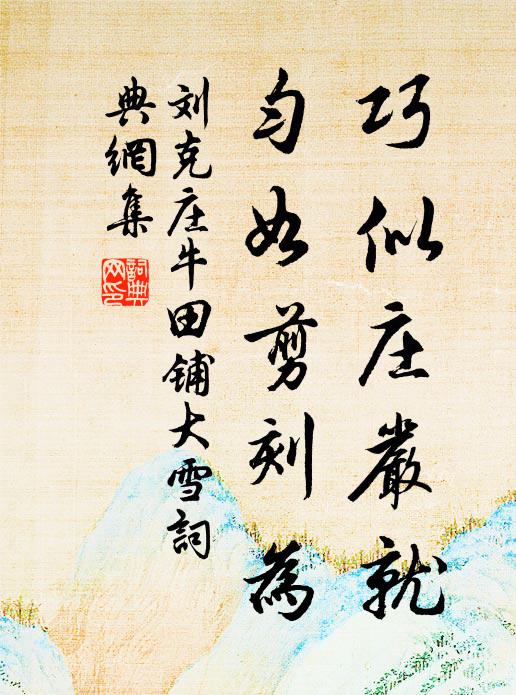 巧似庄嚴就
匀如剪刻為
刘克庄牛田铺大雪詞
典網集
詞典网印